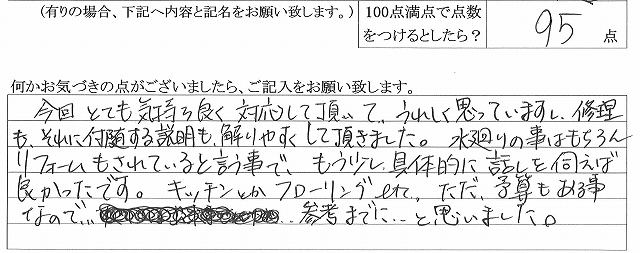 (有りの場合、下記へ内容と記名をお願い致します。)
100点満点で点数
をつけるとしたら?
95 点
何かお気づきの点がございましたら、ご記入をお願い致します。
今回 とても気持ち良く 対応して頂いて、うれしく思っていますし、修理
も、それに付随する説明も、解りやすくして頂きました。 水廻りの事はもちろん
リフォームもされていると言う事で、もう少し、具体的に 話しを 伺えば
良かったです。 キッチンとか フローリング etc。 ただ、予算もある事
なので、 … 参考までに… と思いました。